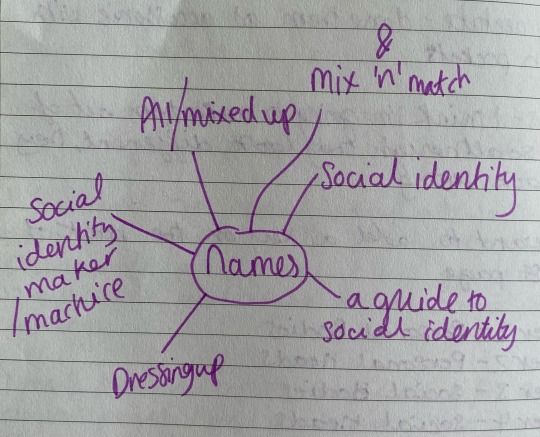 &
Mix 'n' match
All/mixed up
Social identity
Social
identity
maker
/machice
Names
a guide to
social identity
Dressing up